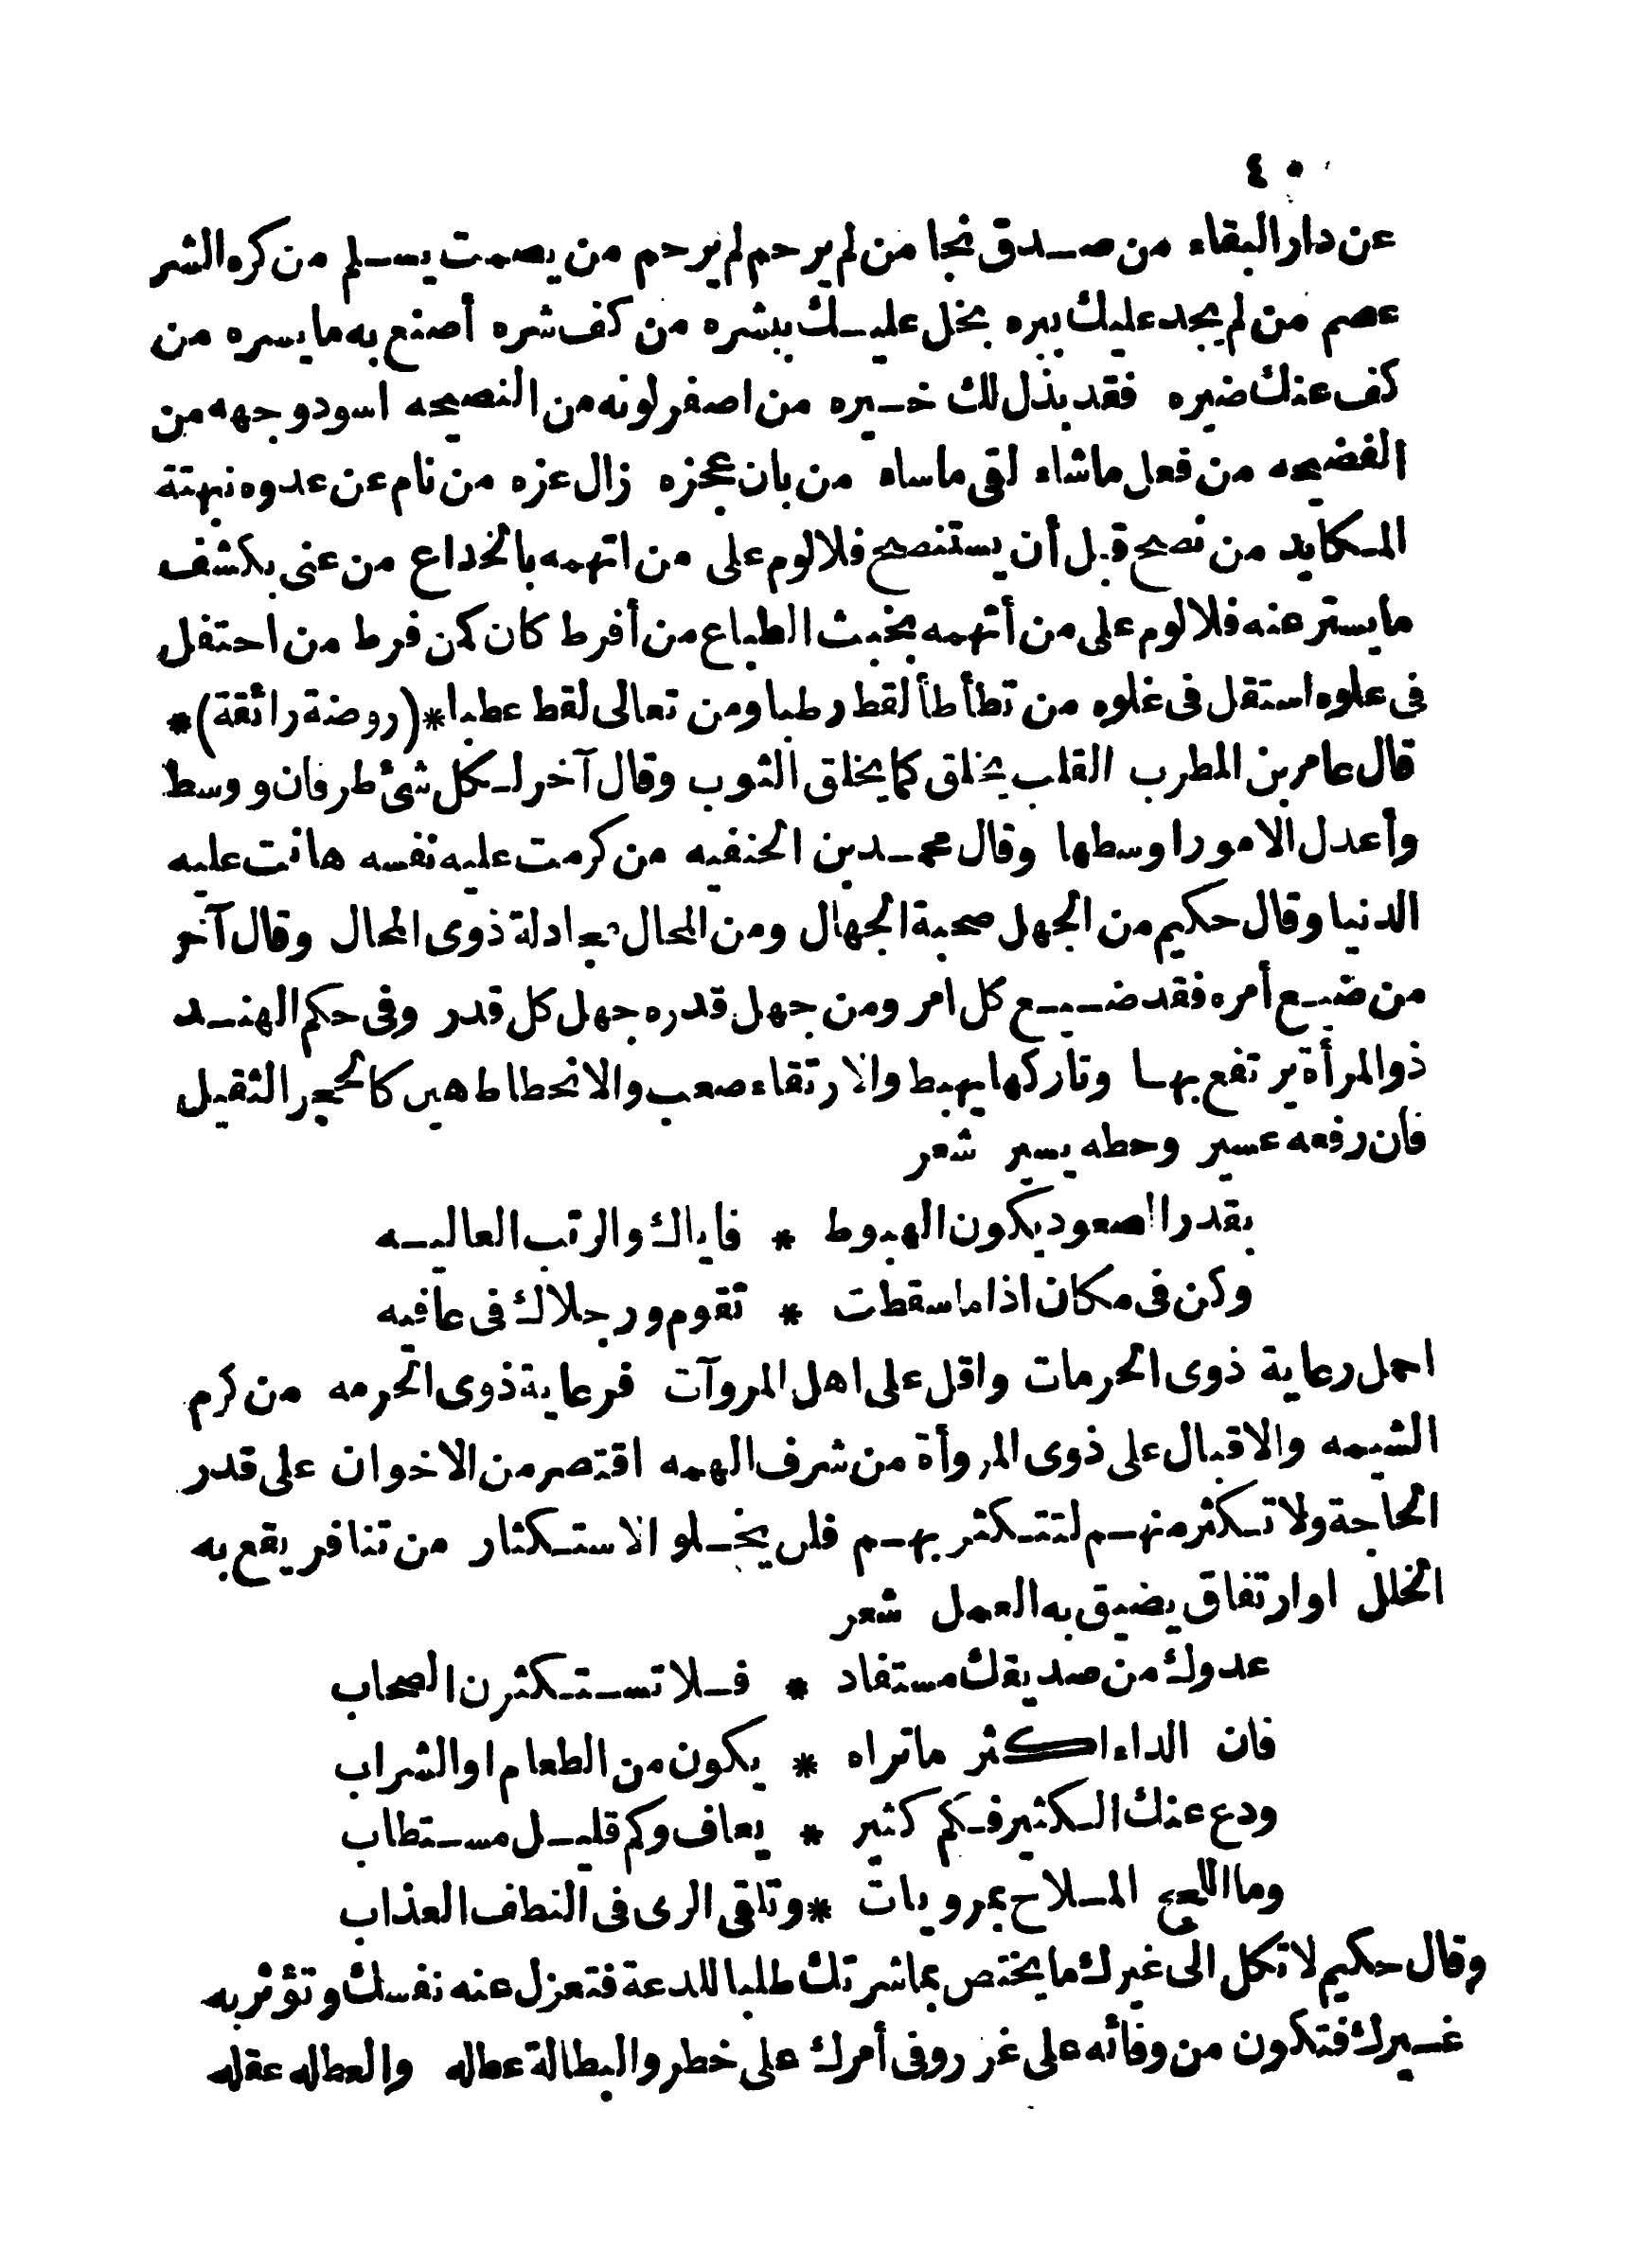 ٤٠
عن دار البقاء من صدق نجا من لم يرحم لم يرحم من يصمت يسلم من كره الشر
عصم من لم يجد عليك ببره بخل عليك ببشره من كف شره أصنع به ما يسره من
كف عنك ضيره فقد بذل لك خيره من اصفر لونه من النصيحه اسود وجهه من
الفضيحه من فعل ماشاء لقى ماساء من بان عجزه زال عزه من نام عن عدوه نبهتة
المكايد من نصح قبل أن يستنصح فلا لوم على من اتهمه بالخداع من عنى بكشف
ما يستر عنه فلا لوم على من أتهمه بخبث الطباع من أفرط كان كمن فرط من احتفل
فى علوه استقل فى غلوه من تطأطأ لقط رطبا ومن تعالى لقط عطبا *(روضة رائقة)*
قال عامر بن المطرب القلب يخلق كما يخلق الثوب وقال آخر لكل شئ طرفان ووسط
وأعدل الامور اوسطها وقال محمد بن الحنفيه من كرمت عليه نفسه هانت عليه
الدنيا وقال حكيم من الجهل صحبة الجهال ومن المحال مجادلة ذوى المحال وقال آخر
من ضيع أمره فقد ضيع كل امر ومن جهل قدره جهل كل قدر وفى حكم الهند
ذو المرأة يرتفع بها وتاركها يهبط والارتقاء صعب والانحطاط هين كالحجر الثقيل
فان رفعه عسير وحطه يسير شعر
بقدر الصعود يكون الهبوط * فاياك والرتب العاليه
وكن فى مكان اذا ما سقطت * تقوم ورجلاك فى عافيه
احمل رعاية ذوى الحرمات واقل على اهل المروآت فرعاية ذوى الحرمه من كرم
الشيمه والاقبال على ذوى المروأة من شرف الهمه اقتصر من الاخوان على قدر
الحاجة ولا تكثر منهم لتتكثر بهم فلن يخلو الاستكثار من تنافر يقع به
الخلل او ارتفاق يضيق به العمل شعر
عدوك من صديقك مستفاد * فلا تستكثرن الصحاب
فان الداء اكثر ماتراه * يكون من الطعام او الشراب
ودع عنك الكثير فكم كثير * يعاف وكم قليل مستطاب
وما اللجج الملاح بمرويات * وتلقى الرى فى النطف العذاب
وقال حكيم لا تكل الى غيرك ما يختص بمباشرتك طلبا للدعة فتعزل عنه نفسك وتؤثر به
غيرك فتكون من وفائه على غرر وفى أمرك على خطر والبطالة عطاله والعطاله عقله